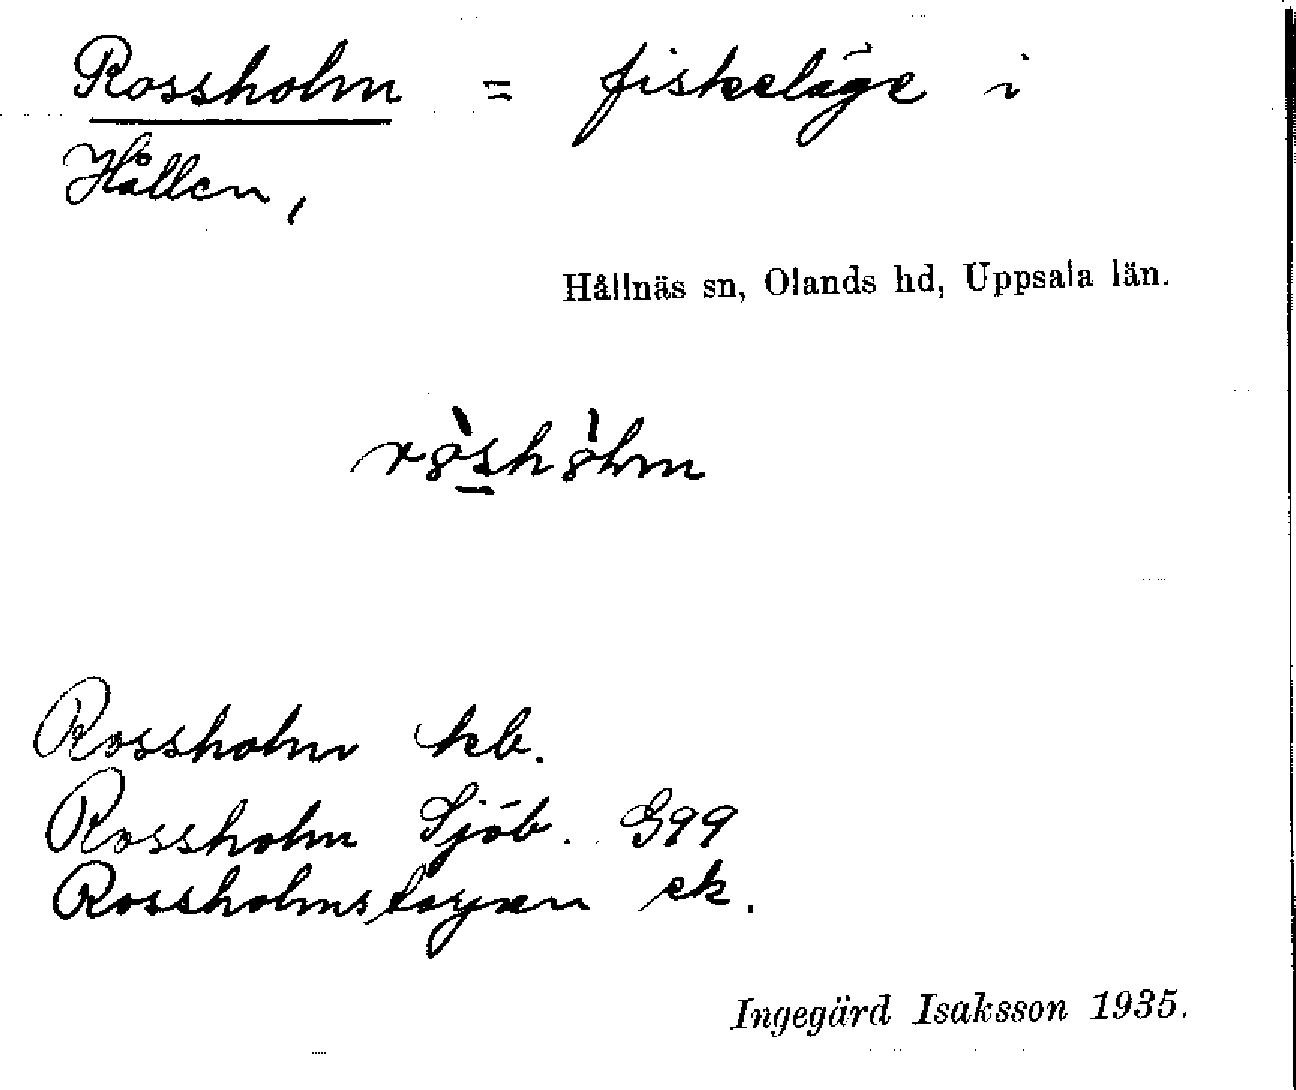 Rossholm = fiskeläge i
Hållen,
Hållnäs sn, Olands hd, Uppsala län.
Rossholm hb.
Rossholm Sjöb. G99
Rossholmstorpen ek.
Ingegärd Isaksson 1935.